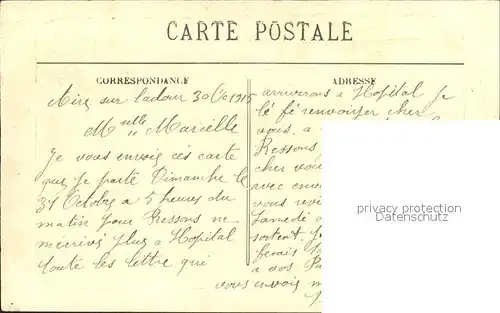 CARTE POSTALE
CORRESPONDANCE
Aire sur ladour 30 Obre 1915
Mselle Marcelle
Je vous envoie ces carte
que je parte Dimanche le
31 Octobre a 5 heures du
matin pour Ressons ne
mécrivé plus a Hopital
toute les lettre qui
ADRESSE
arriverons a Hopital je
lé fé renvoiyer cher
vous. a
Ressons
cher vous
avec
vous
Samedé
sortent.
ferais
a vos
vous envois
privacy protection
Datenschutz